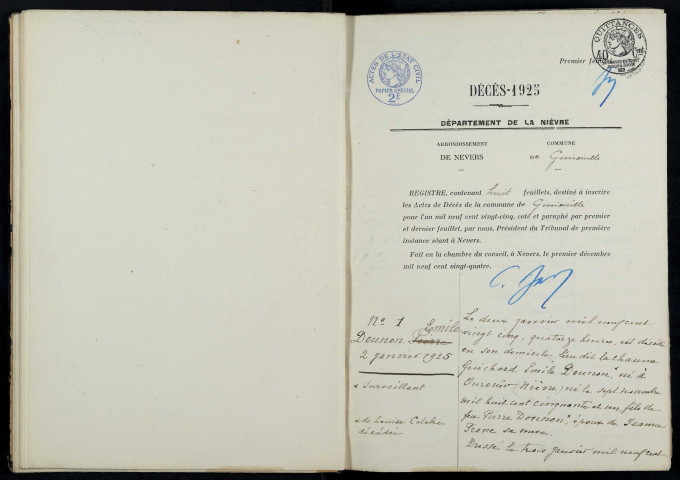 QUITTANCES
40 Cent
ACTES DE L'ÉTAT CIVIL
PAPIER SPÉCIAL
2F
Premier
DÉCÈS-1925
DÉPARTEMENT DE LA NIÈVRE
ARRONDISSEMENT
DE NEVERS
COMMUNE
DE
REGISTRE, contenant huit feuillets, destiné à inscrire
les Actes de Décès de la commune de
pour l'an mil neuf cent vingt-cinq, coté et paraphé par premier
et dernier feuillet, par nous, Président du Tribunal de première
instance séant à Nevers.
Fait en la chambre du conseil, à Nevers, le premier décembre
mil neuf cent vingt-quatre.
No 1
Emile
Dounon Pierre
2 janvier 1925
x Surveillant
x de Louise
décédée
Le deux janvier mil neuf cent
vingt cinq, quatorze heures, est décédé
en son domicile lieu dit la chaume
Guichard Emile Dounon x né à
Ourouër Nièvre, né le sept novembre
mil huit cent cinquante et un, fils de
feu Pierre Dounon x, époux de Jeanne
sa veuve.
Dressé le trois janvier mil neuf cent